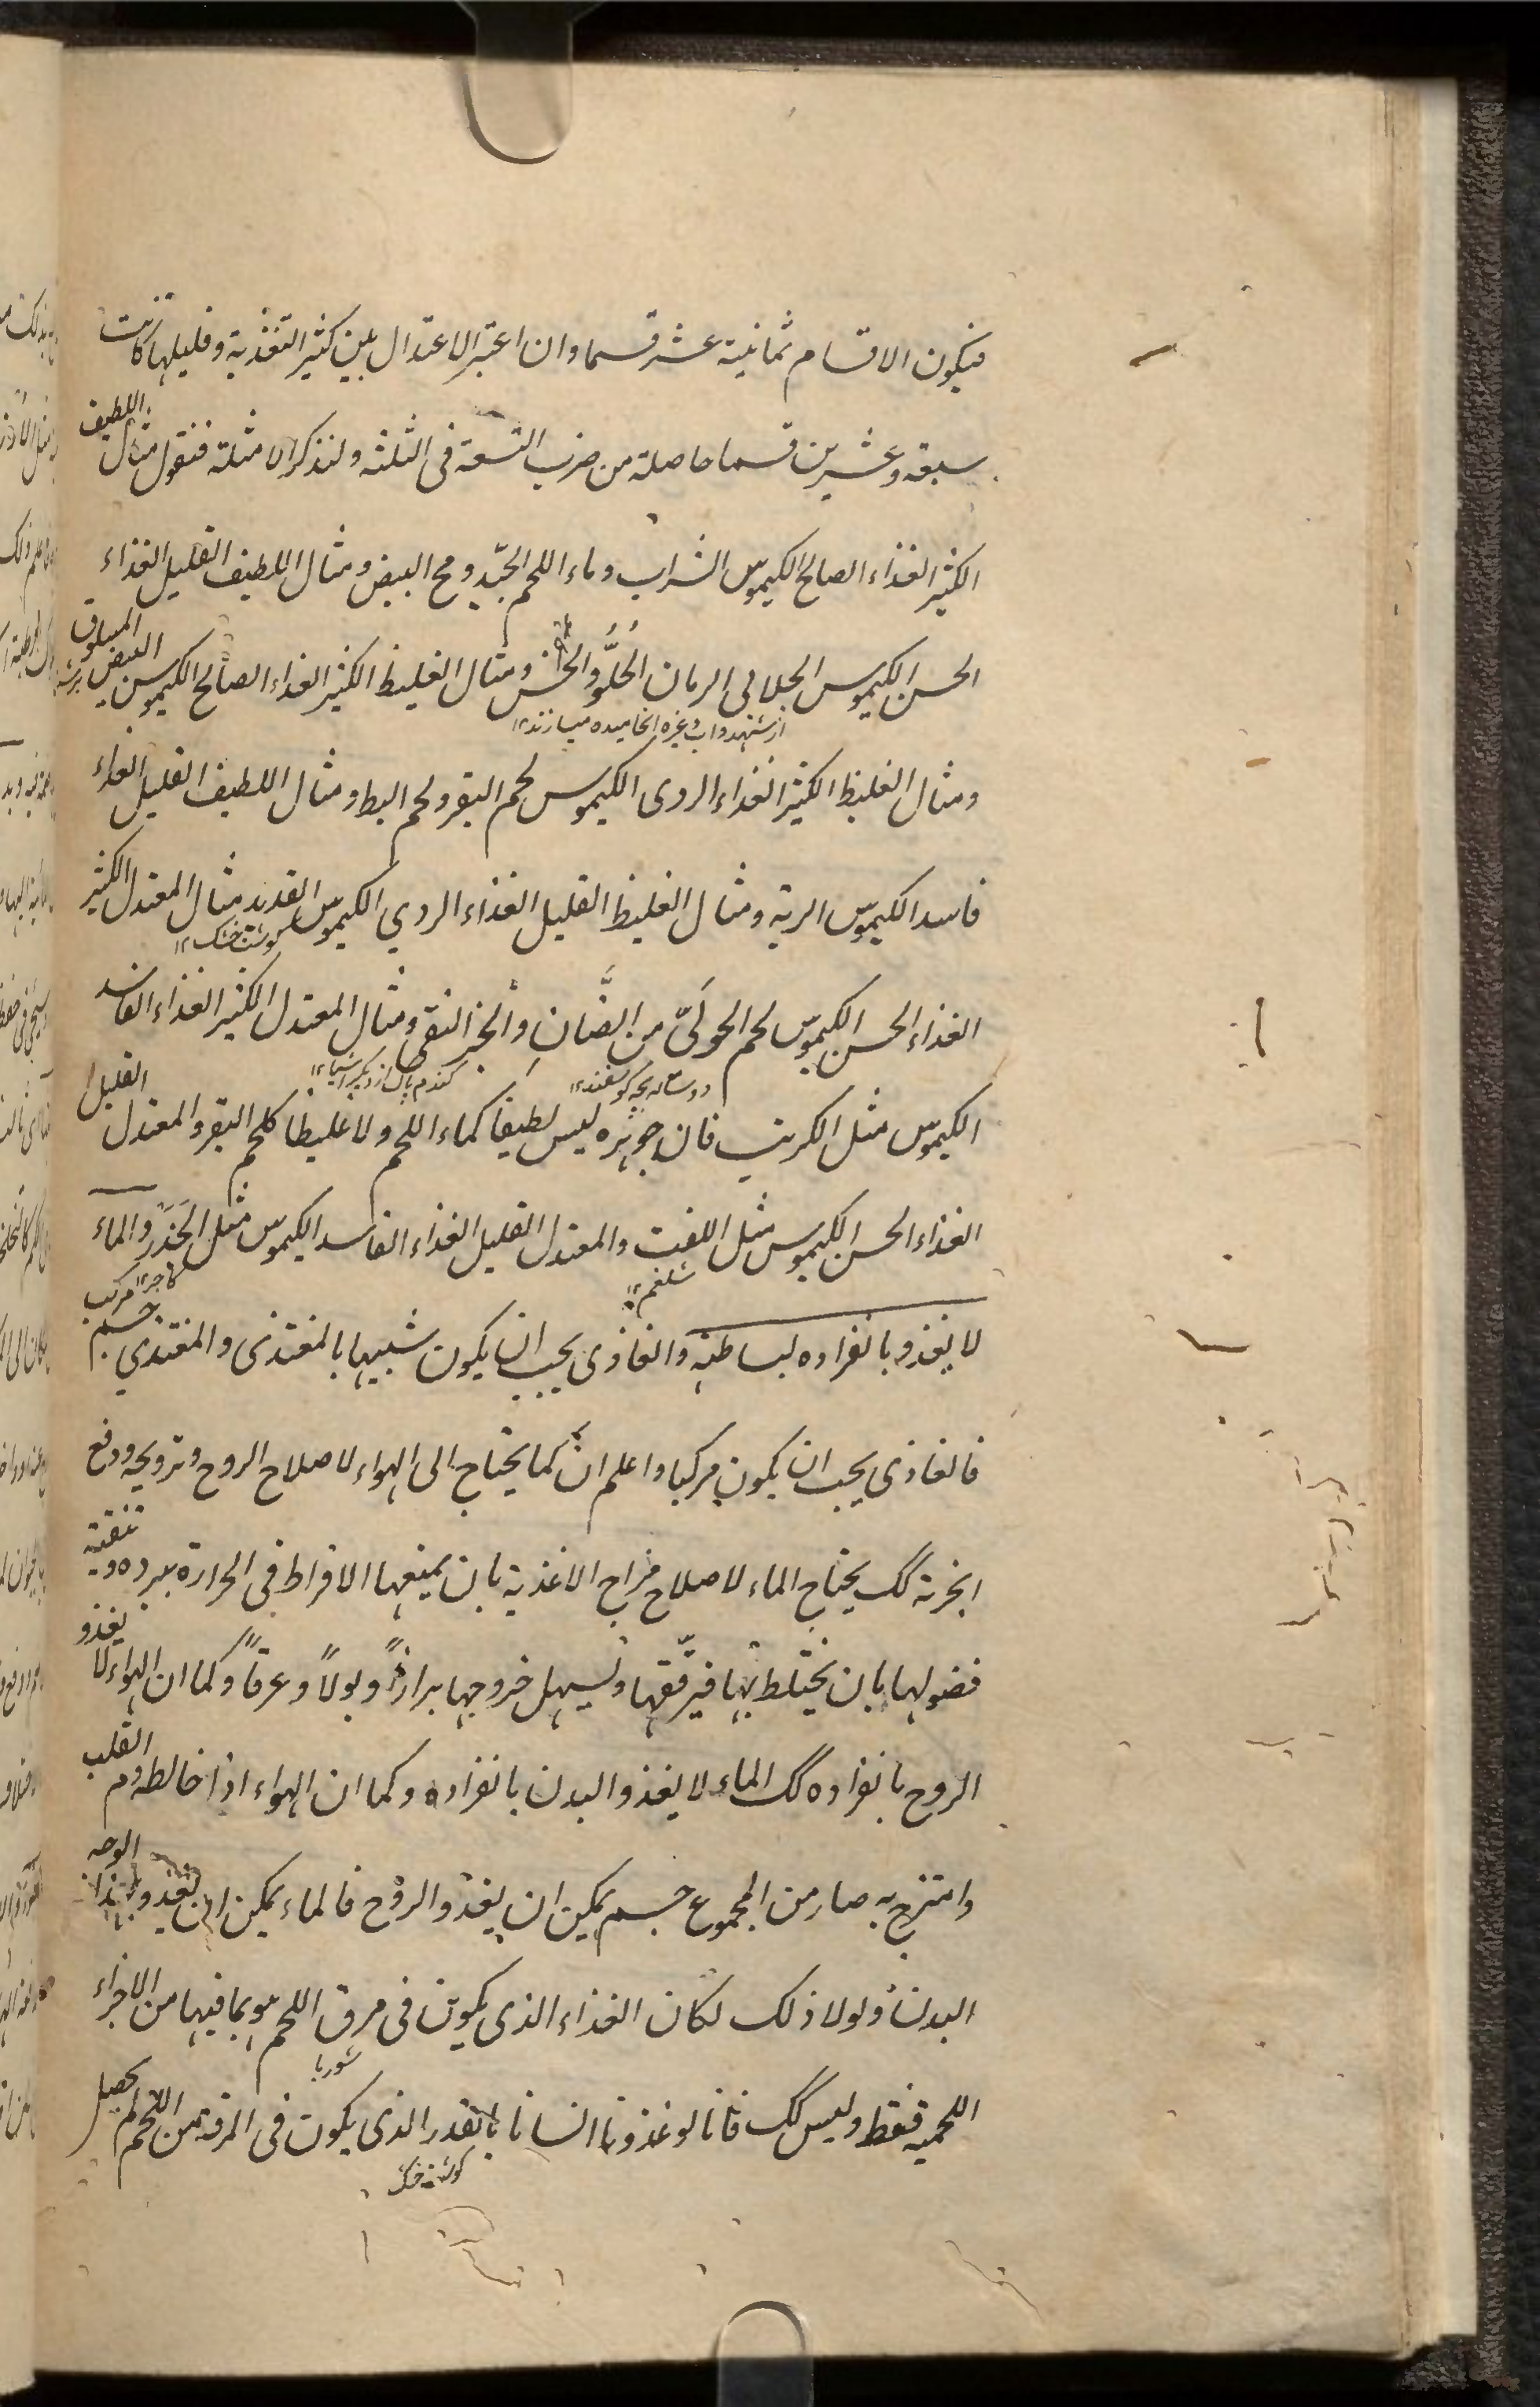 فيكون الاقسام ثمانية عشر قسما وان اعتبر الاعتدال بين كثير التغذية وقليلها كانت
سبعة وعشرين قسما حاصلة من ضرب التسعة فى الثلثة ولنذكر الامثلة فنقول مثال اللطيف
الكثير الغذاء الصالح الكيموس الشراب وماء اللحم الجيّد ومح البيض ومثال اللطيف القليل الغذاء
الحسن الكيموس الجلاب الرمان الحُلوُّ والخس ومثال الغليظ الكثير الغذاء الصالح الكيموس البيض المسلوق
ومثال الغليظ الكثير الغذاء الردى الكيموس لحم البقر ولحم البط ومثال اللطيف القليل الغذاء
فاسد الكيموس الرية ومثال الغليظ القليل الغذاء الردي الكيموس القديد مثال المعتدل الكثير
گوشت خشک ۱۲
الغذاء الحسن الكيموس لحم الحولَىّ من الضَّان والخبز النقى ومثال المعتدل الكثير الغذاء الفاسد
الكيموس مثل الكرنب فان جوهره ليس لطيفا كماء اللحم ولا غليظا كلحم البقر والمعتدل القليل
الغذاء الحسن الكيموس مثل اللفت والمعتدل القليل الغذاء الفاسد الكيموس مثل الجَزَر والماء
شلغم ۱۲ گاجر ۱۲
لا يغذو بانفراده لبساطته والغاذى يجب ان يكون شبيها بالمغتذى والمغتذي جسم مركب
فالغاذى يجب ان يكون مركبا واعلم ان كما يحتاج الى الهواء لاصلاح الروح وترويحه ودفع
ابخرته كك يحتاج الماء لاصلاح مزاج الاغذية بان يمنعها الافراط فى الحرارة ببرده وتنقية
فضولها بان يختلط بها فيرقّقها ويسهل خروجها برازاً وبولاً وعرقاً وكما ان الهواء لا يغذو
الروح بانفراده كك الماء لا يغذو البدن بانفراده وكما ان الهواء اذا خالطه دم القلب
وامتزج به صار من المجموع جسم يمكن ان يغذو الروح فالماء يمكن ان يغذو بهذا الوجه
البدن ولولا ذلك لكان الغذاء الذى يكون فى مرق اللحم هو بما فيها من الاجزاء
شوربا
اللحمية فقط وليس كك فانا لو غذونا انسانا بالقدر الذى يكون فى المرقة من اللحم لم يحصل